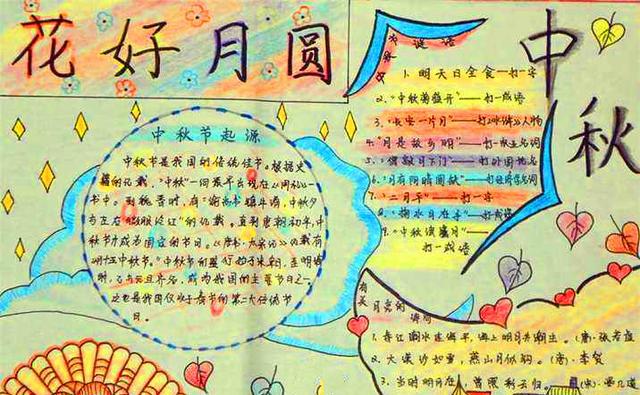 花好月圆
中秋
中秋节起源
中秋节是我国的传统佳节。根据史
籍的记载，“中秋”一词最早出现在《周礼》一
书中。到魏晋时，有“谕尚书镇牛渚，中秋夕
与左右微服泛江”的记载。直到唐朝初年，中
秋节才成为固定的节日。《唐书·太宗记》记载有
中秋节的盛行始于宋朝，至明清
时，已与元旦齐名，成为我国的主要节日之一
这也是我国仅次于春节的第二大传统节
日。
谜语
1. 明天日全食——打一字
2. “中秋菊盛开”——打一成语
3. “长安一片月”——打《水浒》人物
4. “月是故乡明”——打一
5. “偶数月下门”——打外国地名
6. “月有阴晴圆缺”——打经济学名词
7. “二月平”——打一字
8. “掬水月在手”——打成语
9. “中秋度蜜月”——
打一成语
有关月亮的诗句
1. 春江潮水连海平，海上明月共潮生。（唐）·张若虚
2. 大漠沙如雪，燕山月似钩。（唐）·李贺
3. 当时明月在，曾照彩云归。（宋）·晏几道